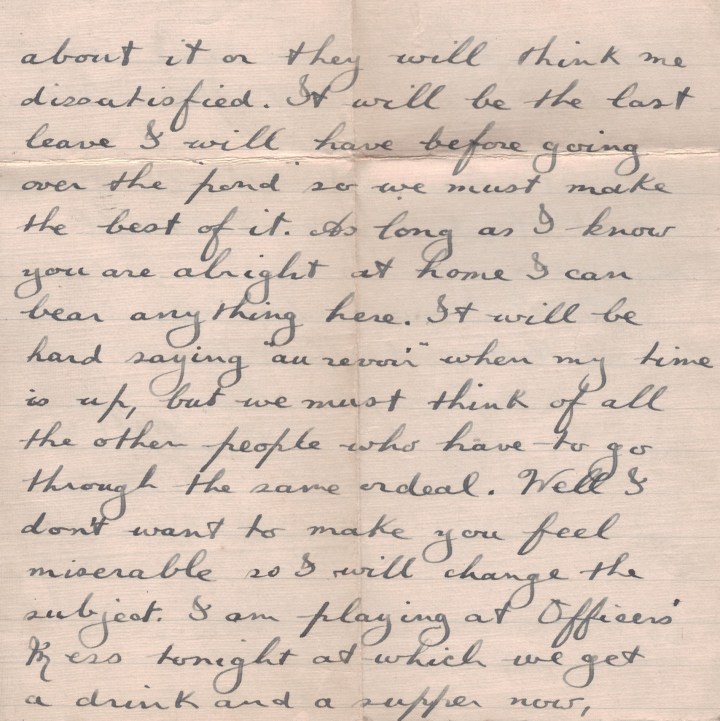 about it or they will think me
dissatisfied. It will be the last
leave I will have before going
over the "pond" so we must make
the best of it. As long as I know
you are alright at home I can
bear anything here. It will be
hard saying "au revoir" when my time
is up, but we must think of all
the other people who have to go
through the same ordeal. Well I
don't want to make you feel
miserable so I will change the
subject. I am playing at Officers'
Mess tonight at which we get
a drink and a supper now,